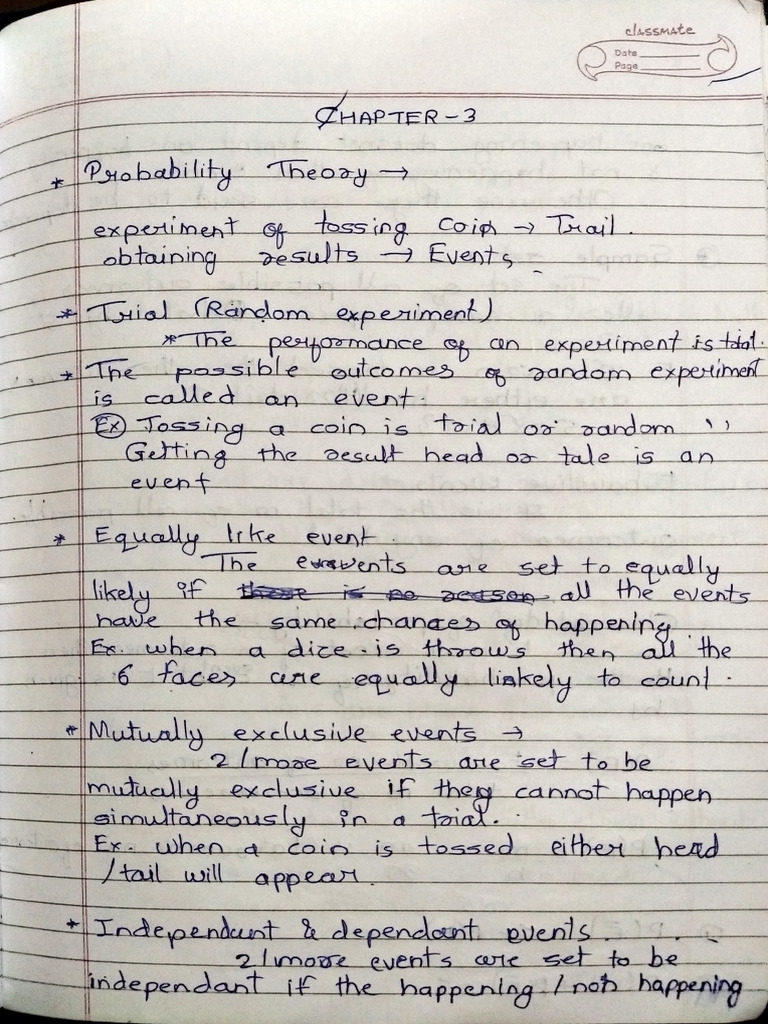 classmate
Date
Page
CHAPTER-3
* Probability Theory →
experiment of tossing coin → Trail.
obtaining results → Events
* Trial (Random experiment)
* The performance of an experiment is trial.
* The possible outcomes of random experiment
is called an event.
Ex Tossing a coin is trial or random ''
Getting the result head or tale is an
event
* Equally like event.
The events are set to equally
likely if there is no reason all the events
have the same chances of happening
Ex. when a dice is throws then all the
6 faces are equally linkely to count.
* Mutually exclusive events →
2/more events are set to be
mutually exclusive if they cannot happen
simultaneously in a trial.
Ex. when a coin is tossed either head
/tail will appear.
* Independant & dependant events.
2/more events are set to be
independant if the happening / not happening